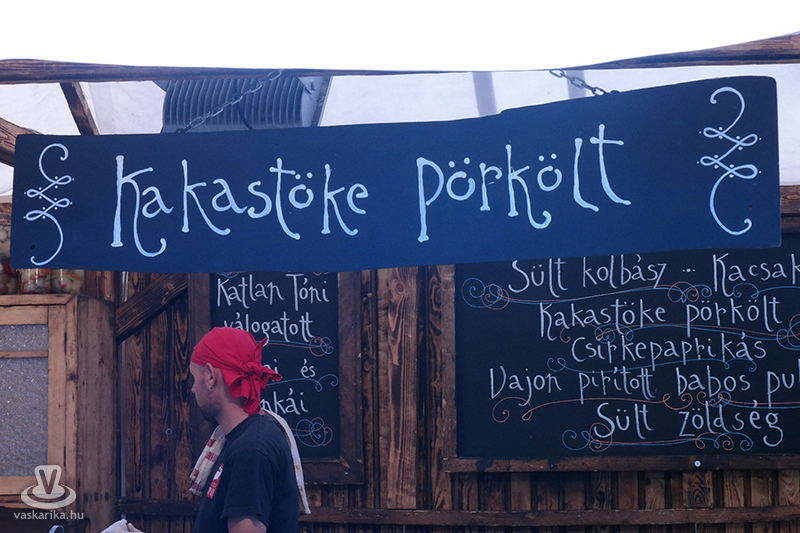 Kakastöke pörkölt
Katlan Tóni
válogatott
és
Sült kolbász
Kakastöke pörkölt
Csirkepaprikás
Vajon pirított babos
Sült zöldség
vaskarika.hu